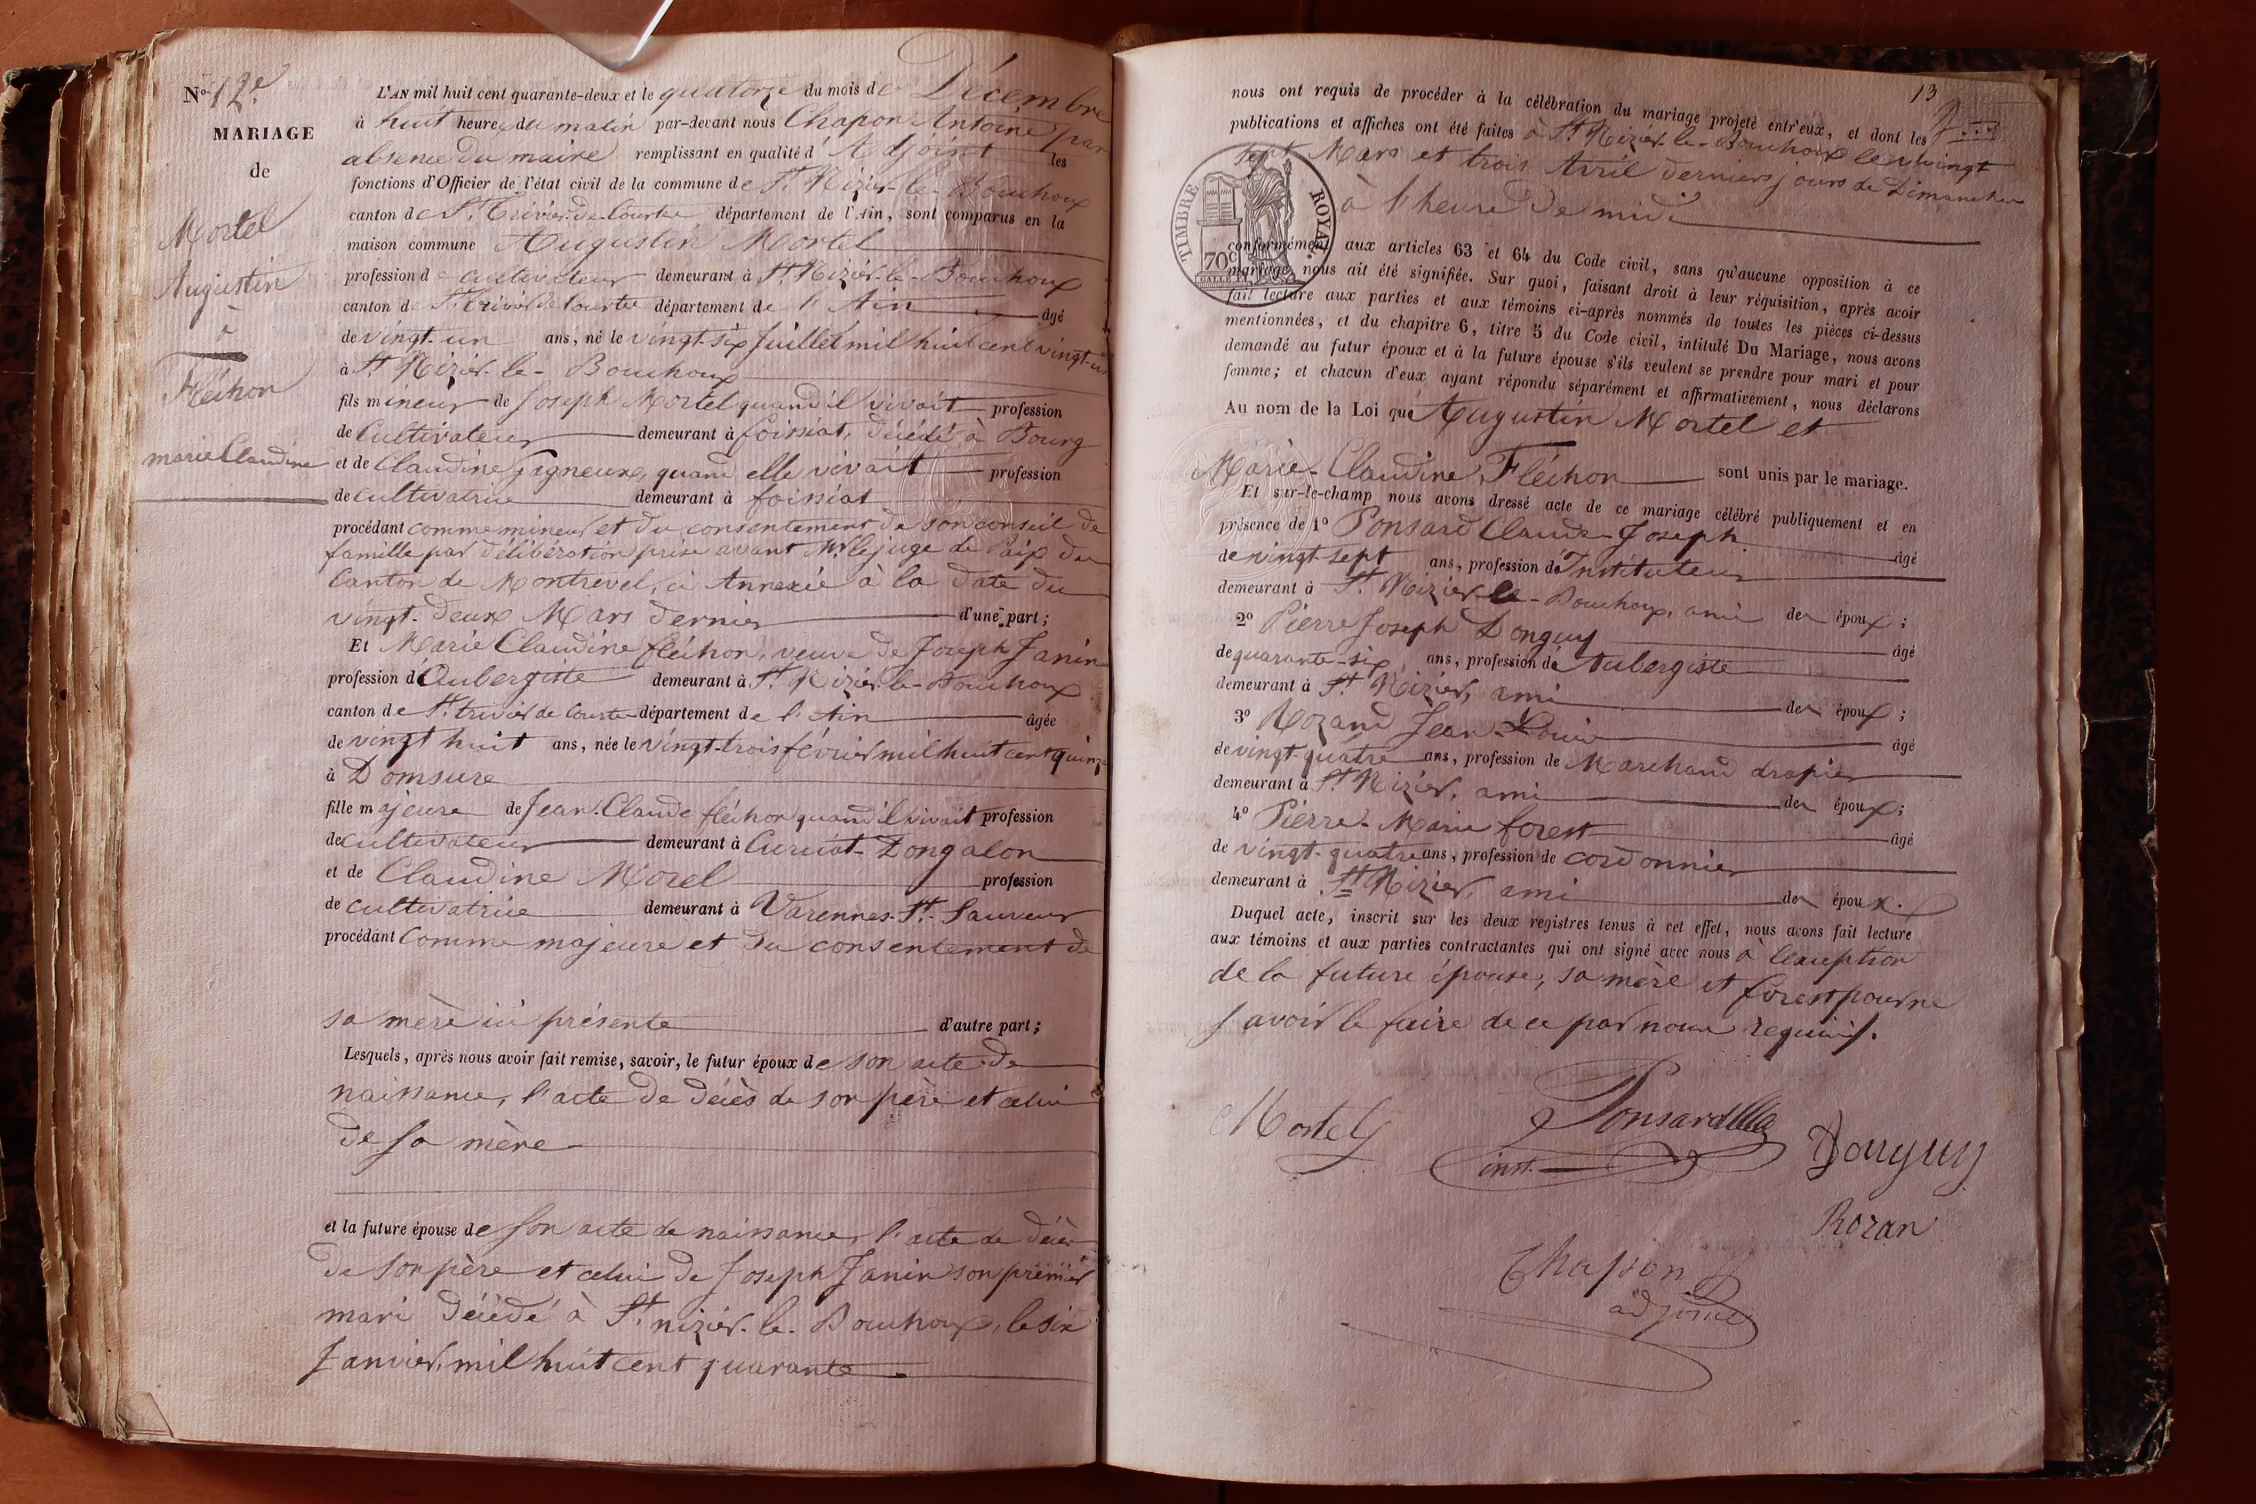 No 12e
MARIAGE
de
Mortel
Augustin
à
Fléchon
marie Claudine
L'AN mil huit cent quarante-deux et le quatorze du mois de Décembre
à huit heures du matin par-devant nous Chapon Antoine par
absence du maire remplissant en qualité d'Adjoint les
fonctions d'Officier de l'état civil de la commune de St. Nizier-le-Bouchoux
canton de St. Trivier-de-Courtes département de l'Ain, sont comparus en la
maison commune Augustin Mortel
profession de cultivateur demeurant à St. Nizier-le-Bouchoux
canton de St. Trivier de Courtes département de l'Ain âgé
de vingt-un ans, né le vingt-six Juillet mil huit cent vingt-un
à St. Nizier-le-Bouchoux
fils mineur de Joseph Mortel quand il vivait profession
de Cultivateur demeurant à foissiat, décédé à Bourg
et de Claudine Gigneux, quand elle vivait profession
de cultivatrice demeurant à foissiat
procédant comme mineur et du consentement de son conseil de
famille par délibération prise avant Mr le juge de Paix du
Canton de Montrevel, ci Annexée à la date du
vingt-deux Mars dernier d'une part;
Et Marie Claudine fléchon, veuve de Joseph Janin
profession d'Aubergiste demeurant à St. Nizier-le-Bouchoux
canton de St. trivier de Courtes département de l'Ain âgée
de vingt huit ans, née le vingt-trois février mil huit cent quinze
à Domsure
fille majeure de Jean-Claude fléchon quand il vivait profession
de cultivateur demeurant à Curciat-Dongalon
et de Claudine Morel profession
de cultivatrice demeurant à Varennes-St.-Sauveur
procédant Comme majeure et du consentement de
sa mère ici présente d'autre part;
Lesquels, après nous avoir fait remise, savoir, le futur époux de son acte de
naissance, l'acte de décès de son père et celui
de sa mère
et la future épouse de son acte de naissance, l'acte de décès
de son père et celui de Joseph Janin son premier
mari décédé à St. nizier-le-Bouchoux, le six
Janvier, mil huit cent quarante.
13
nous ont requis de procéder à la célébration du mariage projeté entr'eux, et dont les
publications et affiches ont été faites à St. Nizier-le-Bouchoux les vingt
sept Mars et trois Avril derniers jours de Dimanches
à l'heure de midi
TIMBRE ROYAL
70c
conformément aux articles 63 et 64 du Code civil, sans qu'aucune opposition à ce
mariage nous ait été signifiée. Sur quoi, faisant droit à leur réquisition, après avoir
fait lecture aux parties et aux témoins ci-après nommés de toutes les pièces ci-dessus
mentionnées, et du chapitre 6, titre 5 du Code civil, intitulé Du Mariage, nous avons
demandé au futur époux et à la future épouse s'ils veulent se prendre pour mari et pour
femme; et chacun d'eux ayant répondu séparément et affirmativement, nous déclarons
Au nom de la Loi que Augustin Mortel et
Marie-Claudine Fléchon sont unis par le mariage.
Et sur-le-champ nous avons dressé acte de ce mariage célébré publiquement et en
présence de 1o Ponsard Claude-Joseph âgé
de vingt-sept ans, profession d'Instituteur
demeurant à St. Nizier-le-Bouchoux, ami des époux;
2o Pierre Joseph Donguy âgé
de quarante-six ans, profession d'Aubergiste
demeurant à St. Nizier, ami des époux;
3o Rozand Jean-Louis âgé
de vingt-quatre ans, profession de Marchand drapier
demeurant à St. Nizier, ami des époux;
4o Pierre-Marie forest âgé
de vingt-quatre ans, profession de cordonnier
demeurant à St. Nizier, ami des époux.
Duquel acte, inscrit sur les deux registres tenus à cet effet, nous avons fait lecture
aux témoins et aux parties contractantes qui ont signé avec nous à l'exception
de la future épouse, sa mère et forest pour ne
savoir le faire de ce par nous requis.
Mortel
Ponsard
inst.
Donguy
Rozan
Chapon
adjoint